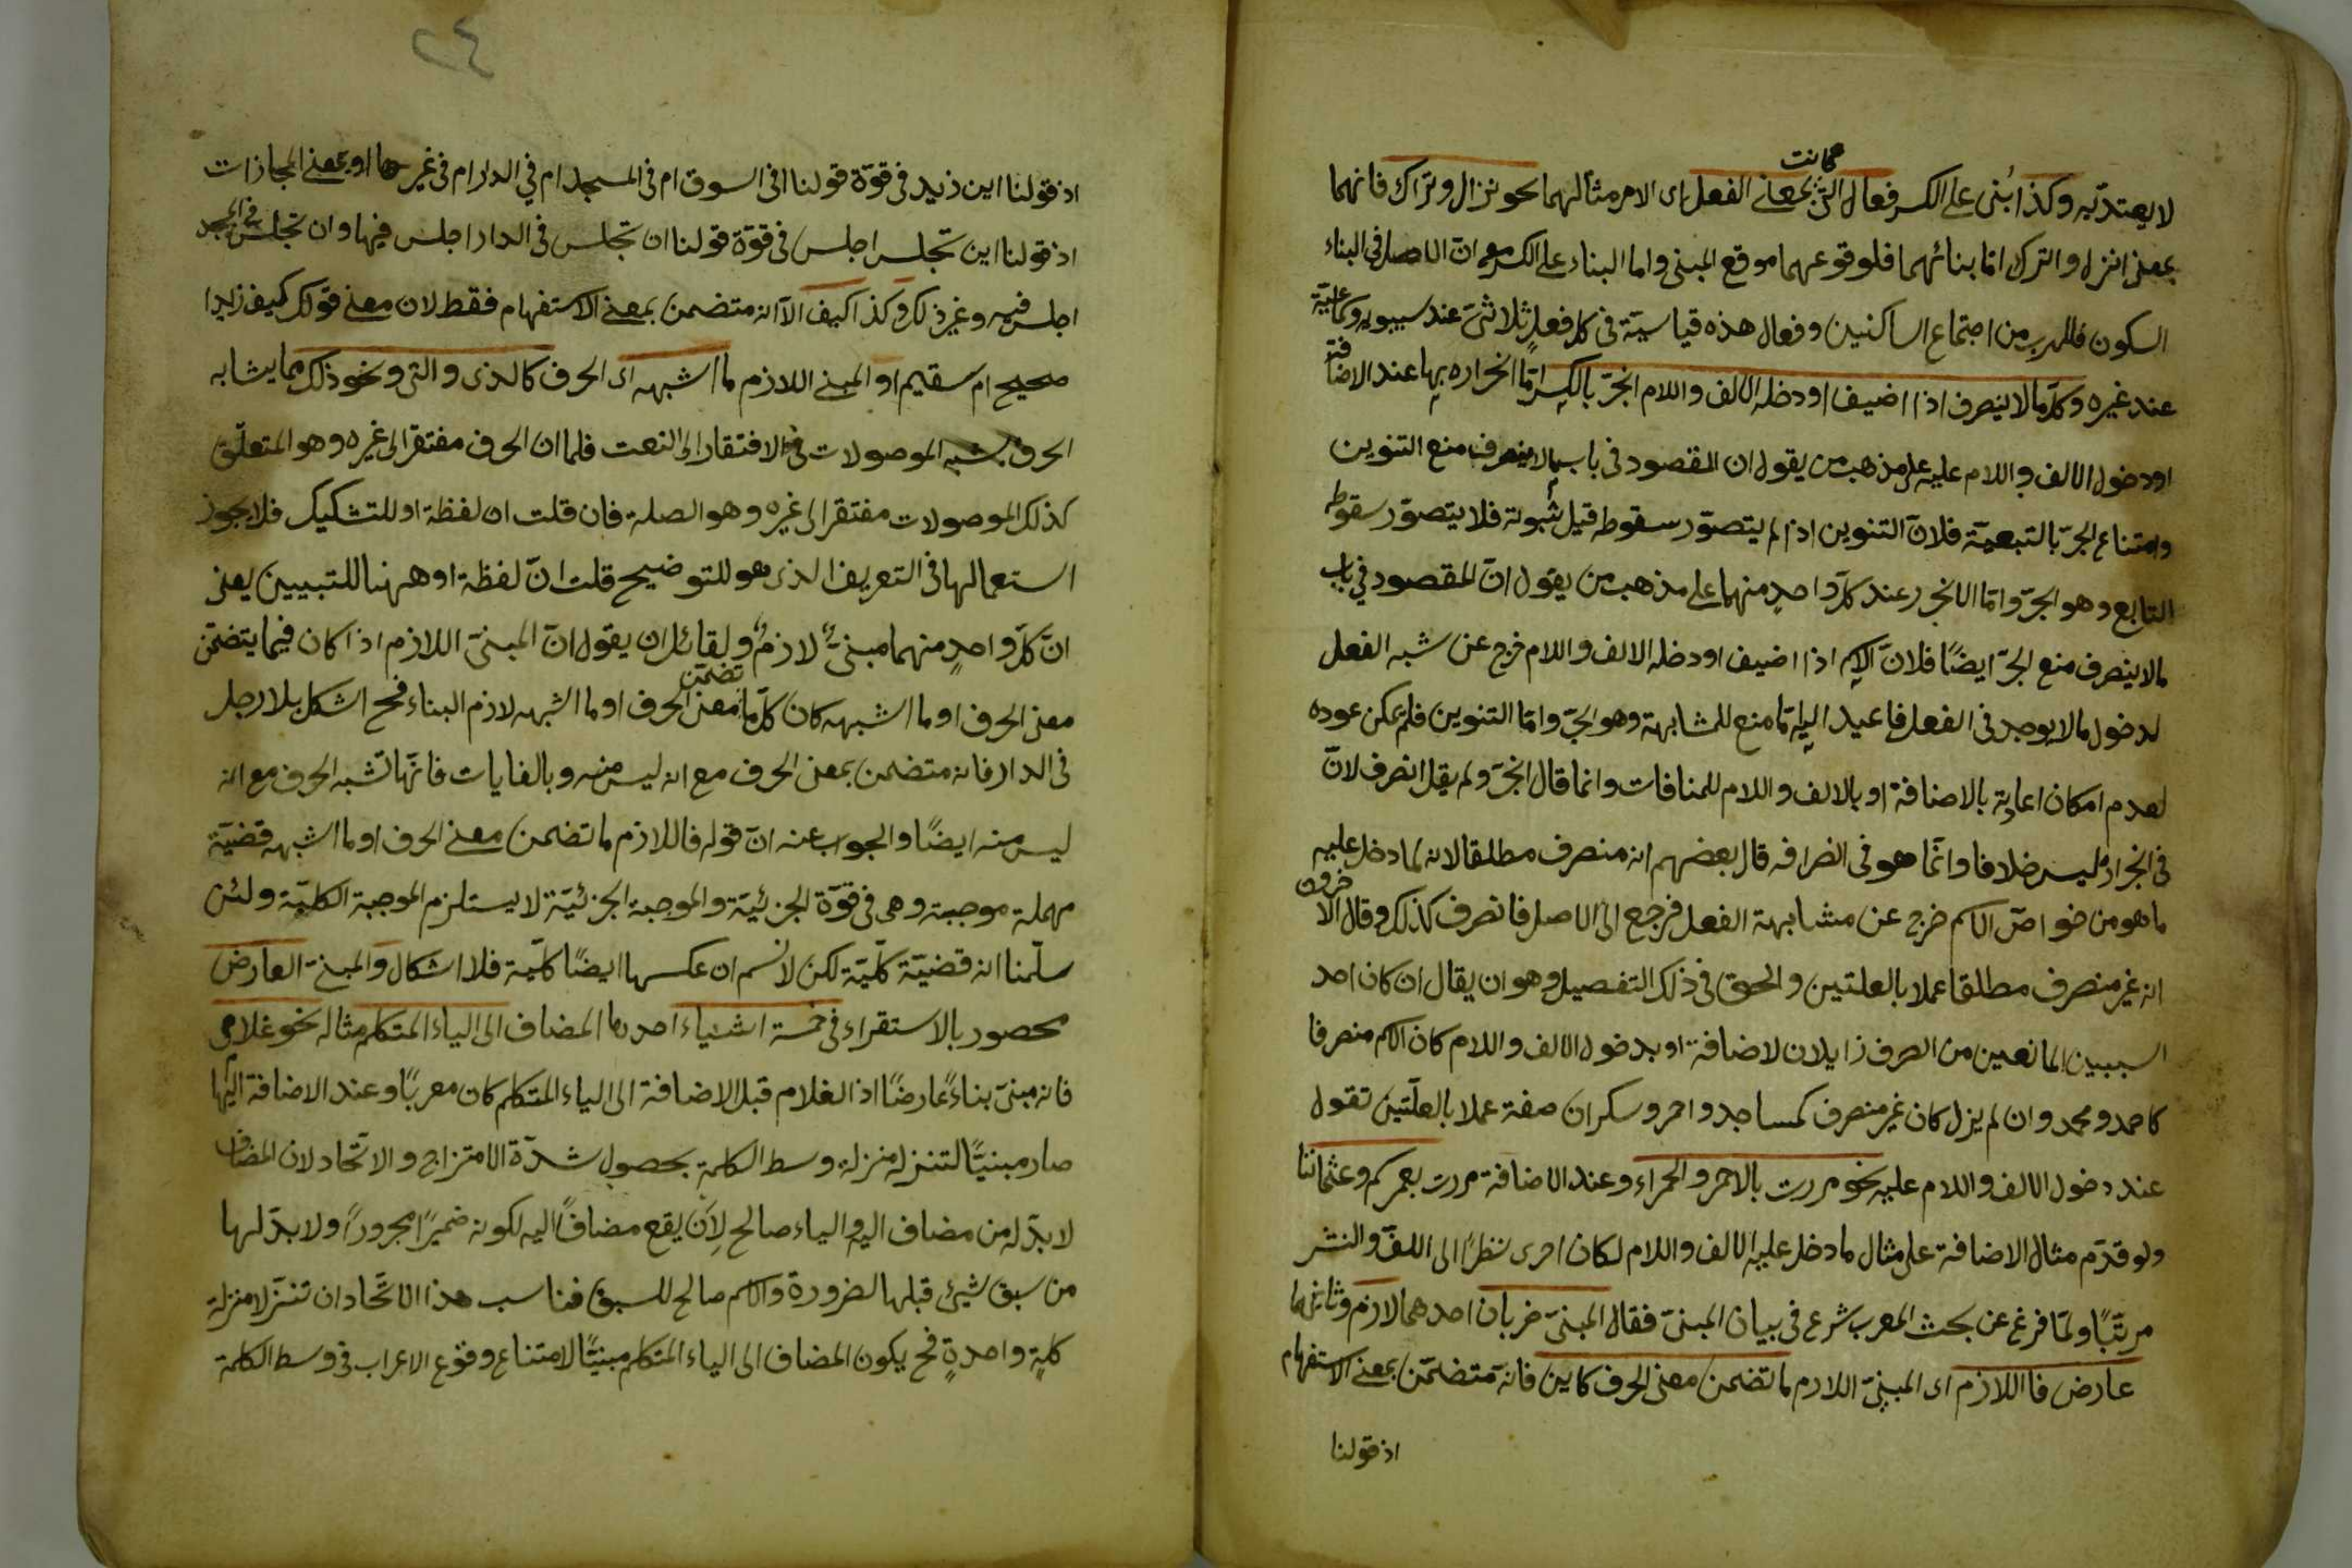 لا يعتد به وكذا بُنى على الكسر فعال التى كانت بمعنى الفعل اى الامر مثالهما نحو نزال وتراك فانهما
بمعنى انزل واترك اما بنائهما فلوقوعهما موقع المبنى واما البناء على الكسر مع ان الاصل فى البناء
السكون فللهرب من اجتماع الساكنين وفعال هذه قياسية فى كل فعلٍ ثلاثىّ عند سيبويه وسماعية
عند غيره وكلّ ما لا ينصرف اذا اضيف او دخله الالف واللام انجرّ بالكسر امّا انجراره بها عند الاضافة
او دخول الالف واللام عليه على مذهب من يقول ان المقصود فى باب ما لا ينصرف منع التنوين
وامتناع الجرّ بالتبعيّة فلانّ التنوين اذ لم يتصوّر سقوطه قبل ثبوته فلا يتصوّر سقوط
التابع وهو الجرّ وامّا الانجرار عند كلّ واحدٍ منهما على مذهب من يقول انّ المقصود فى باب
ما لا ينصرف منع الجرّ ايضًا فلانّ الاسم اذا اضيف او دخله الالف واللام خرج عن شبه الفعل
لدخول ما لا يوجد فى الفعل فاعيد اليه ما منع للمشابهة وهو الجرّ وامّا التنوين فلم يمكن عوده
لعدم امكان اعادته بالاضافة او بالالف واللام للمنافات وانما قال انجرّ ولم يقل انصرف لانّ
فى انجراره ليس خلافا وانّما هو فى انصرافه قال بعضهم انه منصرف مطلقا لانه لما دخل عليه
ما هو من خواصّ الاسم خرج عن مشابهة الفعل فرجع الى الاصل فانصرف كذلك وقال الآخرون
انه غير منصرف مطلقا عملا بالعلتين والحق فى ذلك التفصيل وهو ان يقال ان كان احد
السببين المانعين من الصرف زايلا لاضافة او بدخول الالف واللام كان الاسم منصرفا
كاحمد ومحمد وان لم يزل كان غير منصرف كمساجد واحمر وسكران صفة عملا بالعلّتين تقول
عند دخول الالف واللام عليه نحو مررت بالاحمر والحمراء وعند الاضافة مررت بعمركم وعثماننا
ولو قدّم مثال الاضافة على مثال ما دخل عليه الالف واللام لكان احرى نظرًا الى اللفّ والنشر
مرتبًا ولمّا فرغ عن بحث المعرب شرع فى بيان المبنىّ فقال المبنىّ ضربان احدهما لازم وثانيهما
عارض فاللازم اى المبنىّ اللازم ما تضمن معنى الحرف كاين فانه متضمّن بمعنى الاستفهام
اذ قولنا
٢٤
اذ قولنا اين زيد فى قوّة قولنا افى السوق ام فى المسجد ام فى الدار ام فى غيرها او بمعنى المجازات
اذ قولنا اين تجلس اجلس فى قوّة قولنا ان تجلس فى الدار اجلس فيها وان تجلس فى المسجد
اجلس فيه وغير ذلك وكذا كيف الّا انه متضمن بمعنى الاستفهام فقط لان معنى قولك كيف زيد ا
صحيح ام سقيم او المبنى اللازم ما اشبهه اى الحرف كالذى والتى ونحو ذلك مما يشابه
الحرف بشبه الموصولات فى الافتقار الى النعت فلما ان الحرف مفتقر الى غيره وهو المتعلّق
كذلك الموصولات مفتقر الى غيره وهو الصلة فان قلت ان لفظة او للتشكيك فلا يجوز
استعمالها فى التعريف الذى هو للتوضيح قلت انّ لفظة او ههنا للتبيين يعنى
انّ كلّ واحدٍ منهما مبنىّ لازمٌ ولقائل ان يقول انّ المبنىّ اللازم اذا كان فيما يتضمّن
معنى الحرف او ما اشبهه كان كلّ ما تضمّن معنى الحرف او ما اشبهه لازم البناء فح اشكل بلا رجل
فى الدار فانه متضمن بمعنى الحرف مع انه ليس منه وبالغايات فانّها تشبه الحرف مع انه
ليس منه ايضًا والجواب عنه انّ قوله فاللازم ما تضمن معنى الحرف او ما اشبهه قضيّة
مهملة موجبة وهى فى قوّة الجزئيّة والموجبة الجزئيّة لا يستلزم الموجبة الكليّة ولئن
سلّمنا انه قضيّة كلّيّة لكن لا نسلم ان عكسها ايضًا كلّية فلا اشكال والمبنىّ العارض
محصور بالاستقراء فى خمسة اشياء احدها المضاف الى الياء المتكلم مثاله نحو غلامى
فانه مبنىّ بناءً عارضًا اذ الغلام قبل الاضافة الى الياء المتكلم كان معربًا وعند الاضافة اليها
صار مبنيًّا لتنزله منزلة وسط الكلمة بحصول شدّة الامتزاج والاتّحاد لان المضاف
لا بدّ له من مضاف اليه والياء صالح لأن يقع مضافًا اليه لكونه ضميرًا مجرورًا ولا بدّ لها
من سبق شيئ قبلها لضرورة والاسم صالح للسبق فناسب هذا الاتّحاد ان تنزّلا منزلة
كلمةٍ واحدةٍ فح يكون المضاف الى الياء المتكلم مبنيًّا لامتناع وقوع الاعراب فى وسط الكلمة